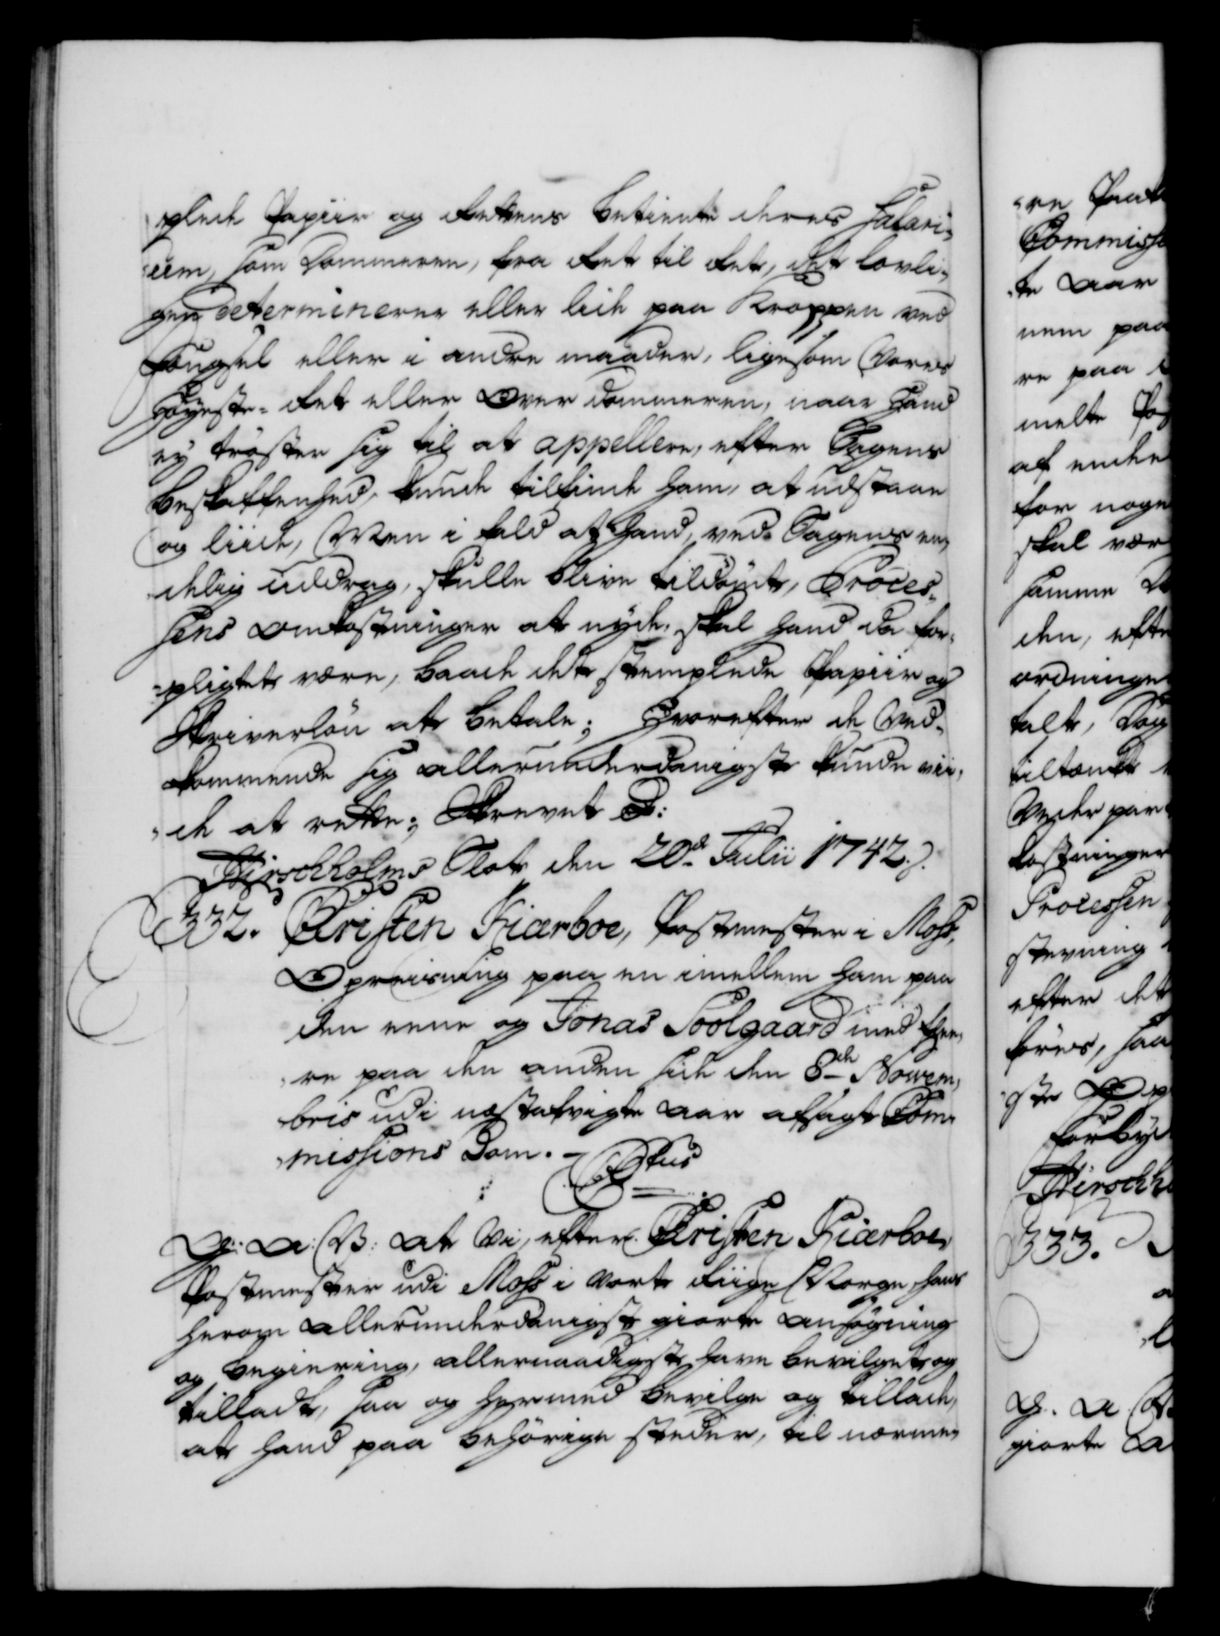 plede Papiir og Rettens Betiente deres Salari-
um, som Dommeren, fra Ret til Ret, det lovli-
gen determinerer eller lide paa Kroppen ved
Fængsel eller i andre maader, ligesom Vores
Høyeste-Ret eller Over Dommeren, naar Hand
ey trøster sig til at appellere, efter Sagens
Beskaffenhed, kunde tilfinde ham, at udstaae
og liide, Men i fald at Hand, ved Sagens en-
delig Uddrag, skulle blive tildømt, Proces-
sens Omkostninger at nyde, skal Hand da for-
pligtet være, baade det stemplede Papiir og
Skriverløn at betale; Hvorefter de Ved-
kommende sig allerunderdanigst kunde vii-
de at rette; Skrevet P:
Hirschholms Slot, den 20de Julii 1742.
332. Christen Kiærboe, Postmester i Moss,
Opreisning paa en imellem ham paa
den eene og Jonas Soolgaard med fle-
re paa den anden Side den 8de Novem-
bris udi næstafvigte Aar afsagt Com-
missions Dom.
G: A: V: At Vi, efter Christen Kiærboe,
Postmester udi Moss i Vort Riige Norge, hans
herom allerunderdanigst giorte Ansøgning
og Begiering, allernaadigst have bevilget og
tilladt, saa og hermed bevilge og tillade,
at Hand paa behørige steder, til nærme-
Commiss
te Aar
nem paa
re paa
melte
af ende
for noge
skal vær
samme
den, efte
ordninge
talt,
tiltænkt
Veder par
kostninger
Processen
stevning
efter det
føres, saa
gste Op
Hirschh
333.
G. A. V
giorte A